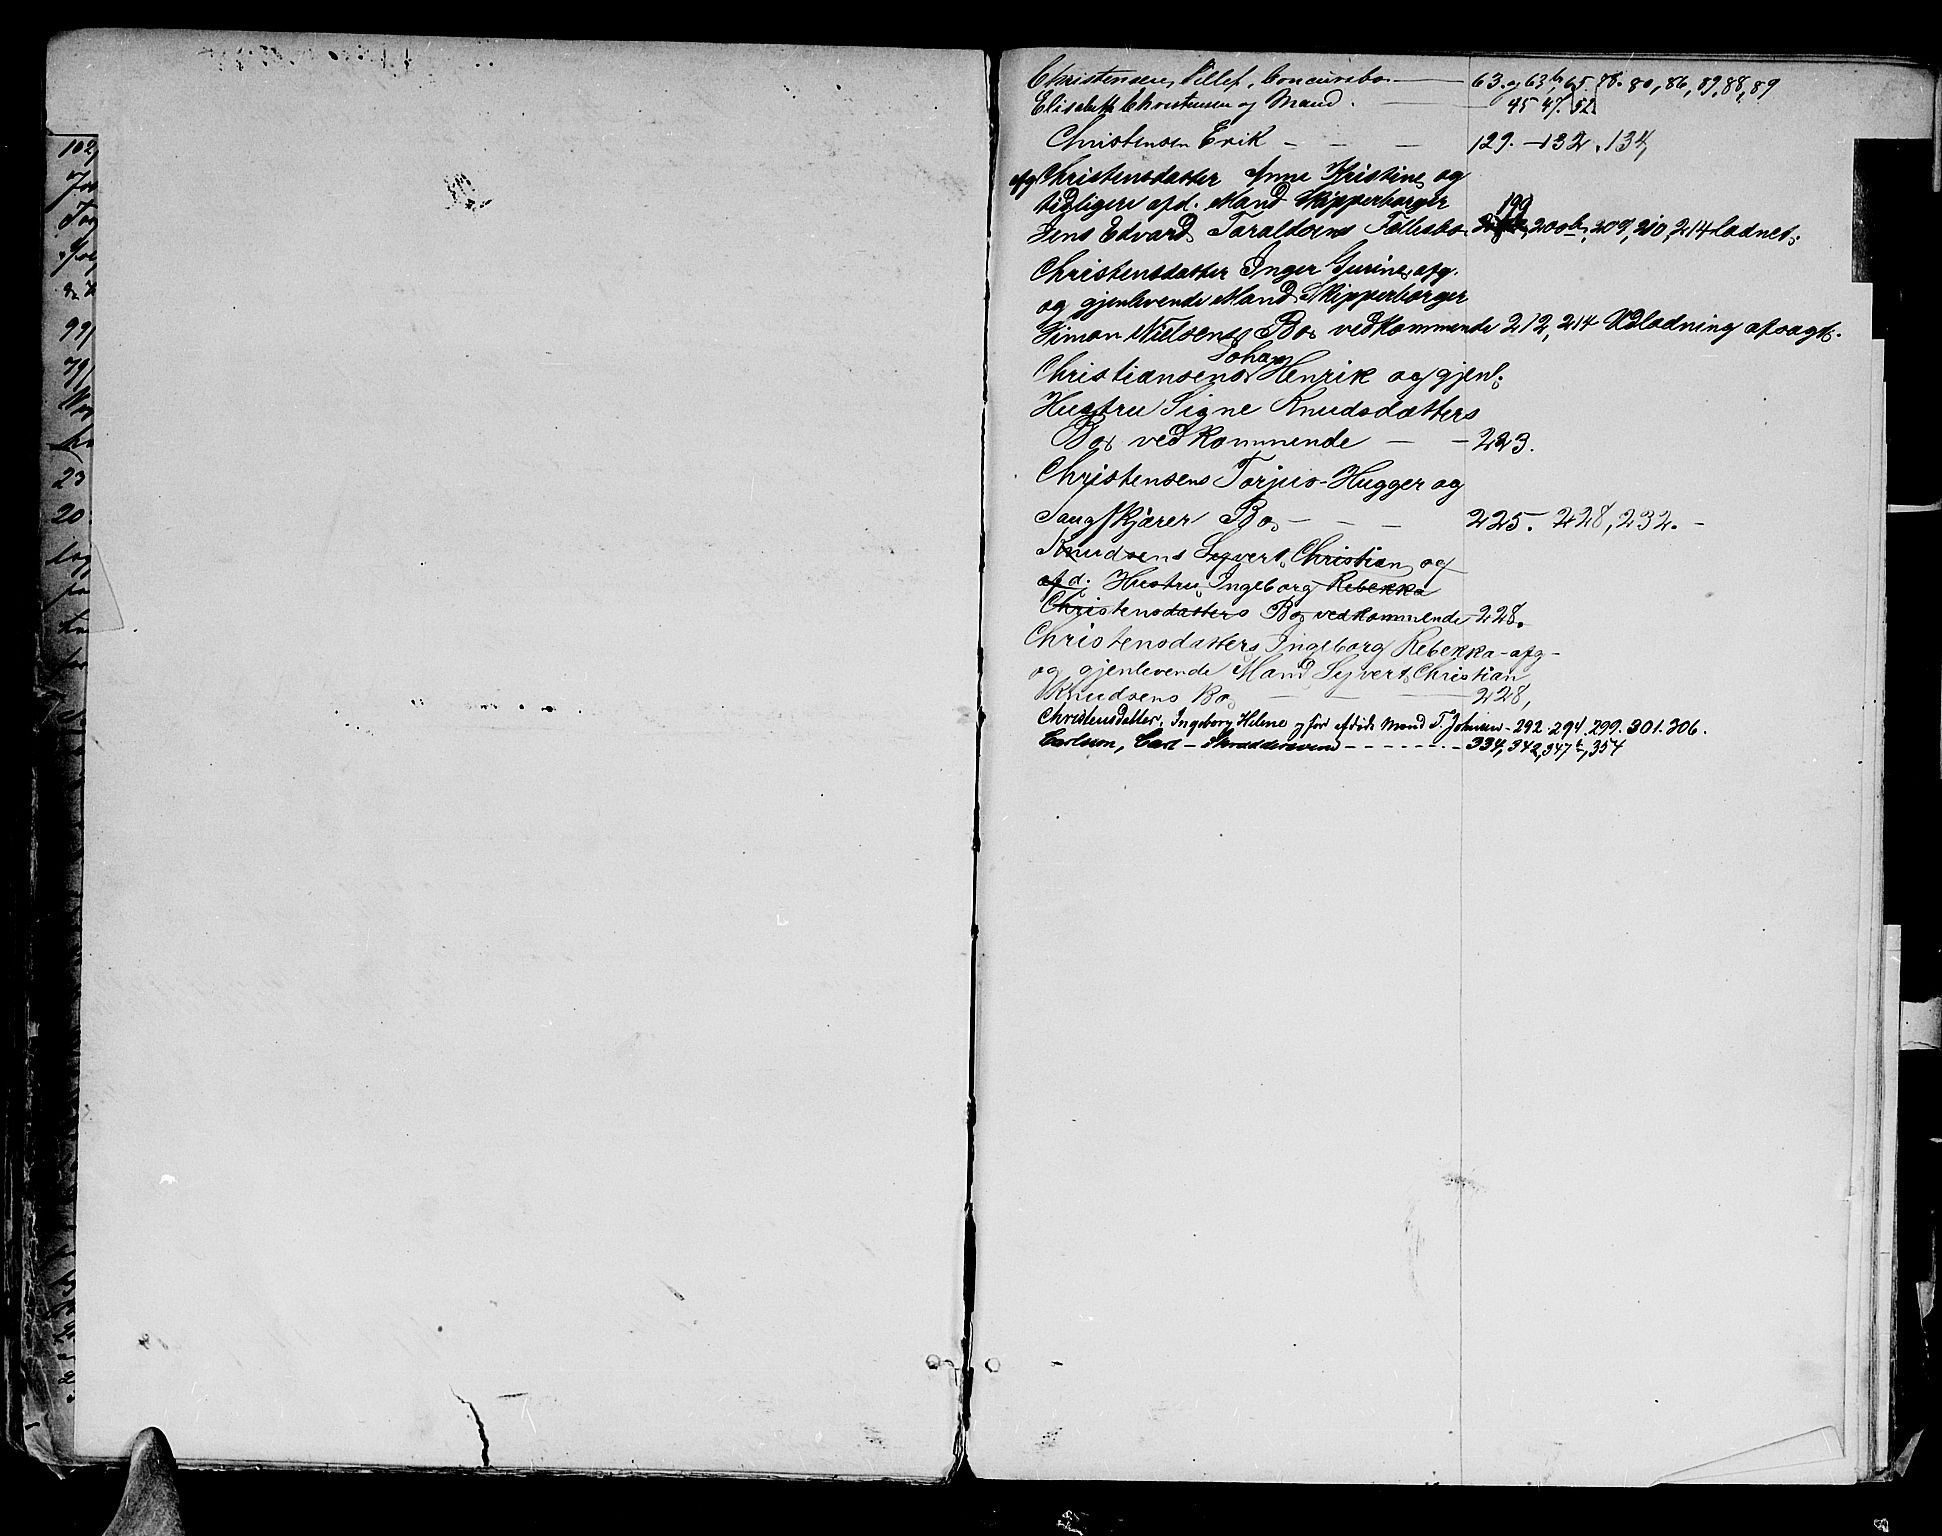 102
99
79
23
20
Christensens, Tellef, Concursbo. — 63. og 63b, 65. 78. 80, 86, 87, 88, 89
Elisabeth Christensen og Mand. — 45 47. 52
Christensen Erik — — — 129. — 132, 134,
afg Christensdatter Anne Kristine, og
tidligere afd. Mand Skipperborger 199
Jens Edvard Taraldsens Fællesbo 200b, 209, 210, 214 ladnet.
Christensdatter Inger Gurine, afg.
og gjenlevende Mand Skipperborger
Simon Nielsens Bo vedkommende 212, 214 Udlodning afsagt.
Johan
Christiansens Henrik og gjenl.
Hustru Signe Knudsdatters
Bo vedkommende — — 223.
Christensens Torjus - Hugger og
Saugskjærer Bo — — — 225. 228, 232. —
Knudsens Syvert Christian og
afd. Hustru Ingeborg Rebekka
Christensdatters Bo vedkommende 228.
Christensdatters Ingeborg Rebekka - afg -
og gjenlevende Mand Syvert Christian
Knudsens Bo — — 228,
Christensdatter, Ingeborg Helene og før afdøde Mand T. Johnsen - 292. 294. 299. 301. 306.
Carlsson, Carl - Skræddersvend - - - - - - - 334, 342, 347b, 354